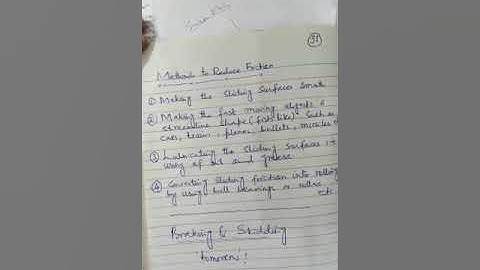 31
Methods to Reduce Friction
① Making the Sliding Surfaces Smoo
② Making the fast moving objects a
streamline shape (fish like) such as
cars, trains, planes, bullets, missiles e
③ Lubricating the sliding surfaces i-e
using of oil and grease
④ Converting sliding friction into rolling
by using ball bearings or roller
etc
Breaking & Skidding
'tomorrow'!